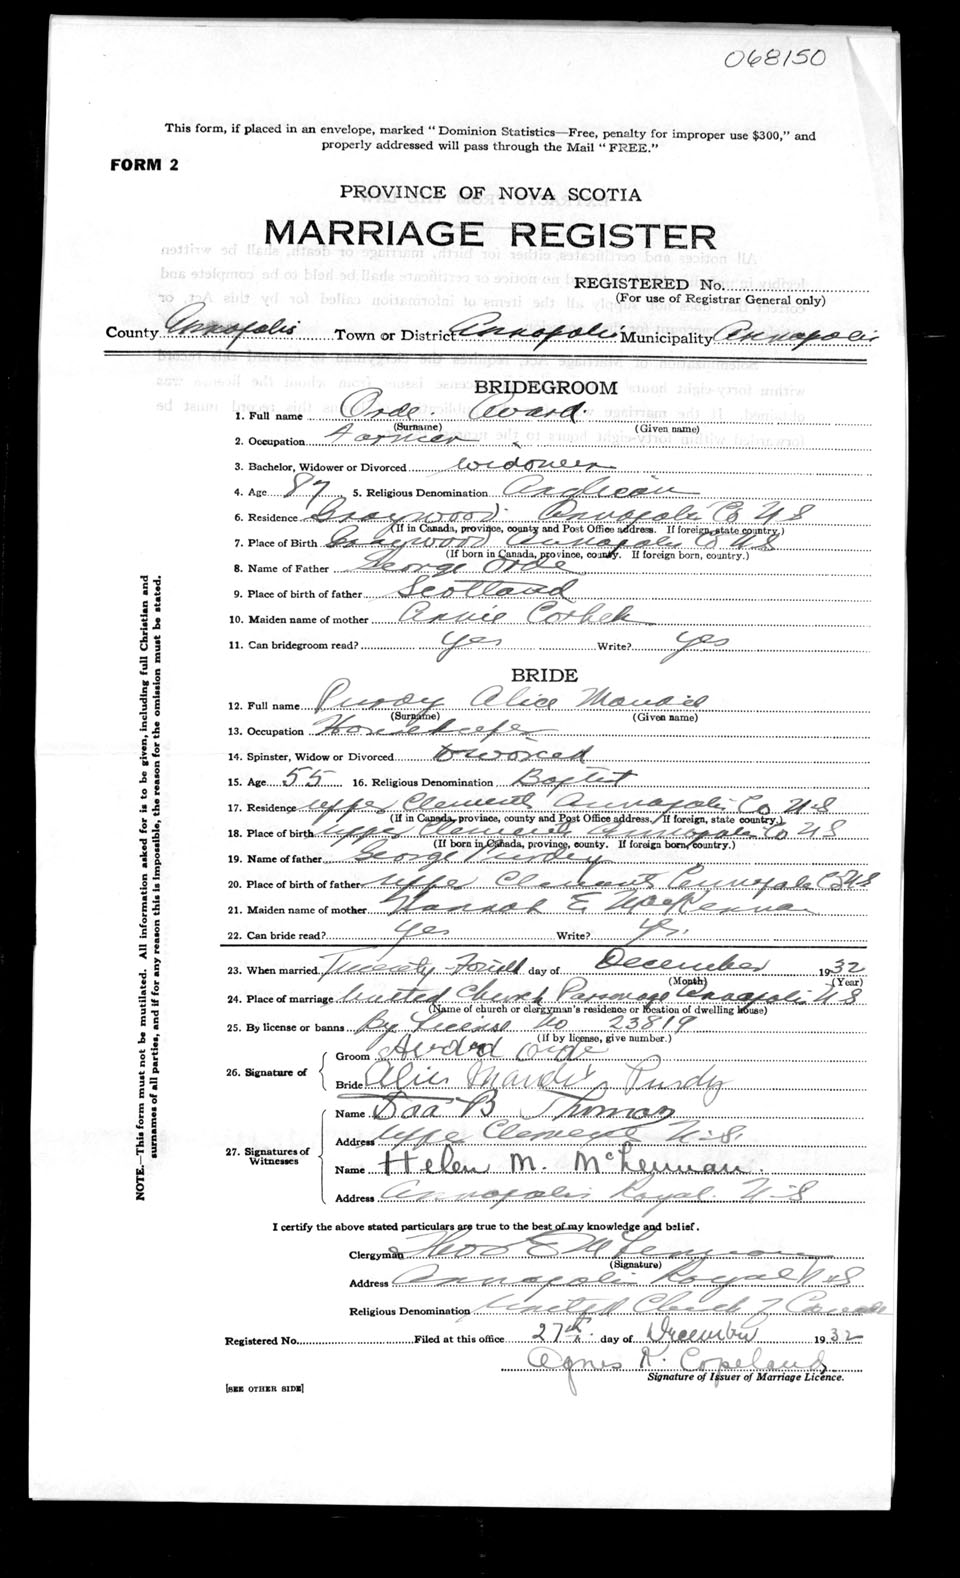 068150
This form, if placed in an envelope, marked “Dominion Statistics—Free, penalty for improper use $300,” and
properly addressed will pass through the Mail “FREE.”
FORM 2
PROVINCE OF NOVA SCOTIA
MARRIAGE REGISTER
REGISTERED No.
(For use of Registrar General only)
County Annapolis Town or District Annapolis Municipality Annapolis
BRIDEGROOM
1. Full name Orde Avard
(Surname) (Given name)
2. Occupation Farmer
3. Bachelor, Widower or Divorced widower
4. Age 87 5. Religious Denomination Anglican
6. Residence Graywood Annapolis Co N S
(If in Canada, province, county and Post Office address. If foreign, state country.)
7. Place of Birth Graywood Annapolis Co N S
(If born in Canada, province, county. If foreign born, country.)
8. Name of Father George Orde
9. Place of birth of father Scotland
10. Maiden name of mother Annie
11. Can bridegroom read? yes Write? yes
BRIDE
12. Full name Purdy Alice Maudie
(Surname) (Given name)
13. Occupation Housekeeper
14. Spinster, Widow or Divorced Divorced
15. Age 55 16. Religious Denomination Baptist
17. Residence Upper Clements Annapolis Co N-S
(If in Canada, province, county and Post Office address. If foreign, state country.)
18. Place of birth Upper Clements Annapolis Co N S
(If born in Canada, province, county. If foreign born, country.)
19. Name of father George Purdy
20. Place of birth of father Upper Clements Annapolis Co N S
21. Maiden name of mother Hannah E
22. Can bride read? yes Write? yes
23. When married, Twenty Fourth day of December 1932
(Month) (Year)
24. Place of marriage United Church Parsonage Annapolis N S
(Name of church or clergyman's residence or location of dwelling house)
25. By license or banns By License No 23819
(If by license, give number.)
26. Signature of
Groom Avard Orde
Bride Alice Maudie Purdy
27. Signatures of Witnesses
Name B Thomas
Address Upper Clements N-S.
Name Helen M. McLennan.
Address Annapolis Royal. N-S
I certify the above stated particulars are true to the best of my knowledge and belief.
Clergyman McLennan
(Signature)
Address Annapolis Royal N S
Religious Denomination United Church of Canada
Registered No. Filed at this office 27th day of December 1932
Agnes K. Copeland
Signature of Issuer of Marriage Licence.
[SEE OTHER SIDE]
NOTE.—This form must not be mutilated. All information asked for is to be given, including full Christian and
surnames of all parties, and if for any reason this is impossible, the reason for the omission must be stated.